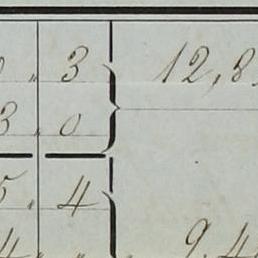 " 3 12,8
3 " 0
5 " 4
4 " " 9,4